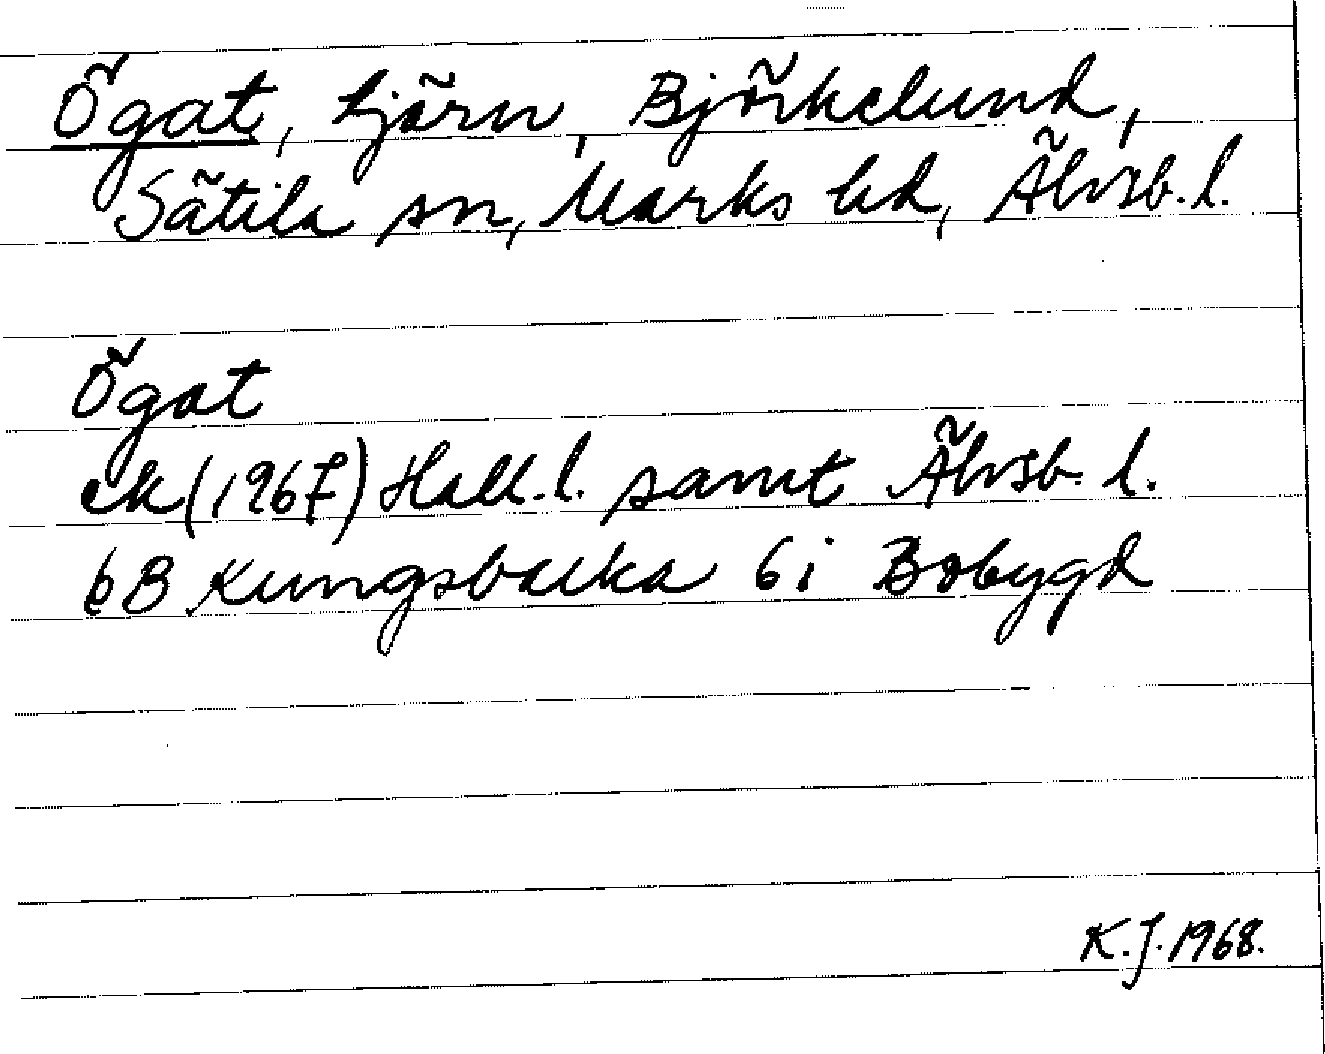 Ögat, tjärn, Björkelund,
Sätila sn, Marks hd, Älvsb. l.
Ögat
ek (1967) Hall. l. samt Älvsb. l.
6B Kungsbacka 6i Bobygd
K.J. 1968.